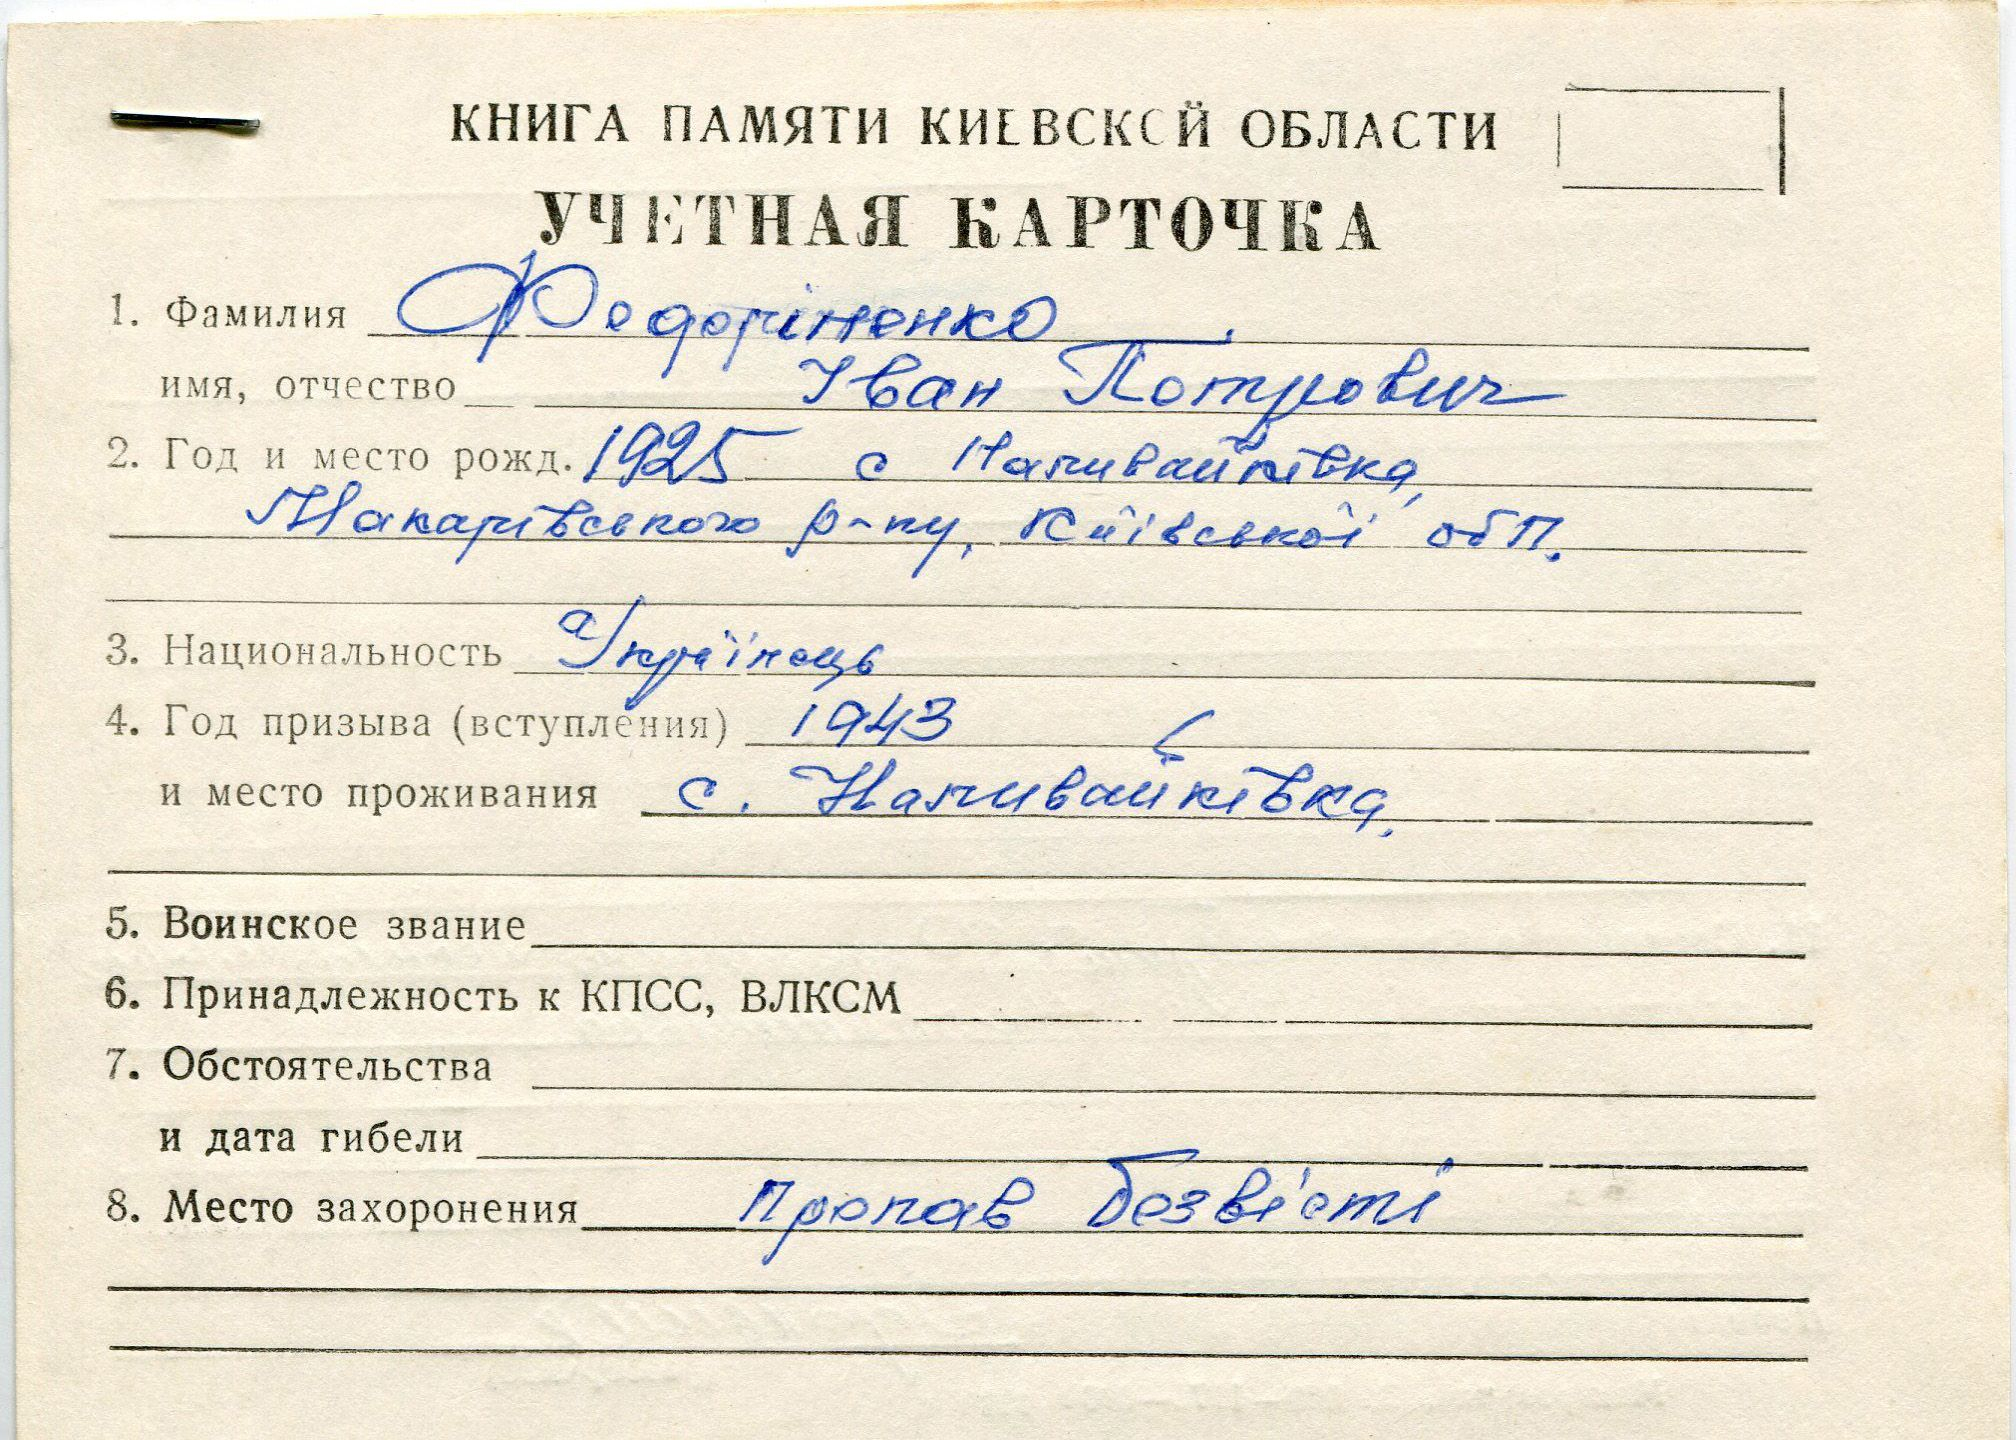 КНИГА ПАМЯТИ КИЕВСКОЙ ОБЛАСТИ
УЧЕТНАЯ КАРТОЧКА
1. Фамилия Федоріненко
имя, отчество Іван Петрович
2. Год и место рожд. 1925 с Наливайківка,
Макарівського р-ну, Київської обл.
3. Национальность Українець
4. Год призыва (вступления) 1943
и место проживания с. Наливайківка.
5. Воинское звание
6. Принадлежность к КПСС, ВЛКСМ
7. Обстоятельства
и дата гибели
8. Место захоронения Пропав безвісті